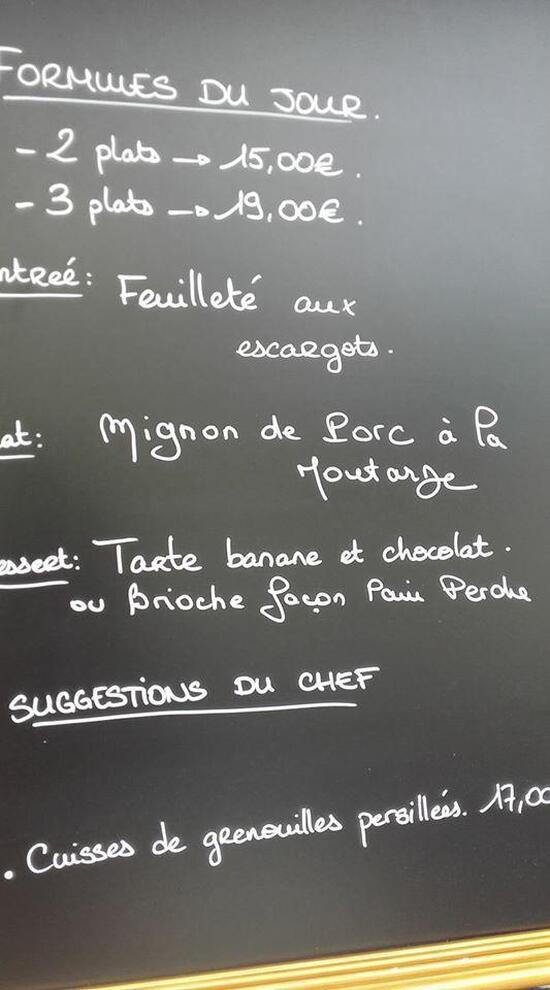 FORMULES DU JOUR.
- 2 plats → 15,00€.
- 3 plats → 19,00€.
ntreé: Feuilleté aux
escargots.
at: Mignon de Porc à la
Moutarde
essert: Tarte banane et chocolat.
ou Brioche façon Pain Perdu
SUGGESTIONS DU CHEF
. Cuisses de grenouilles persillées. 17,00